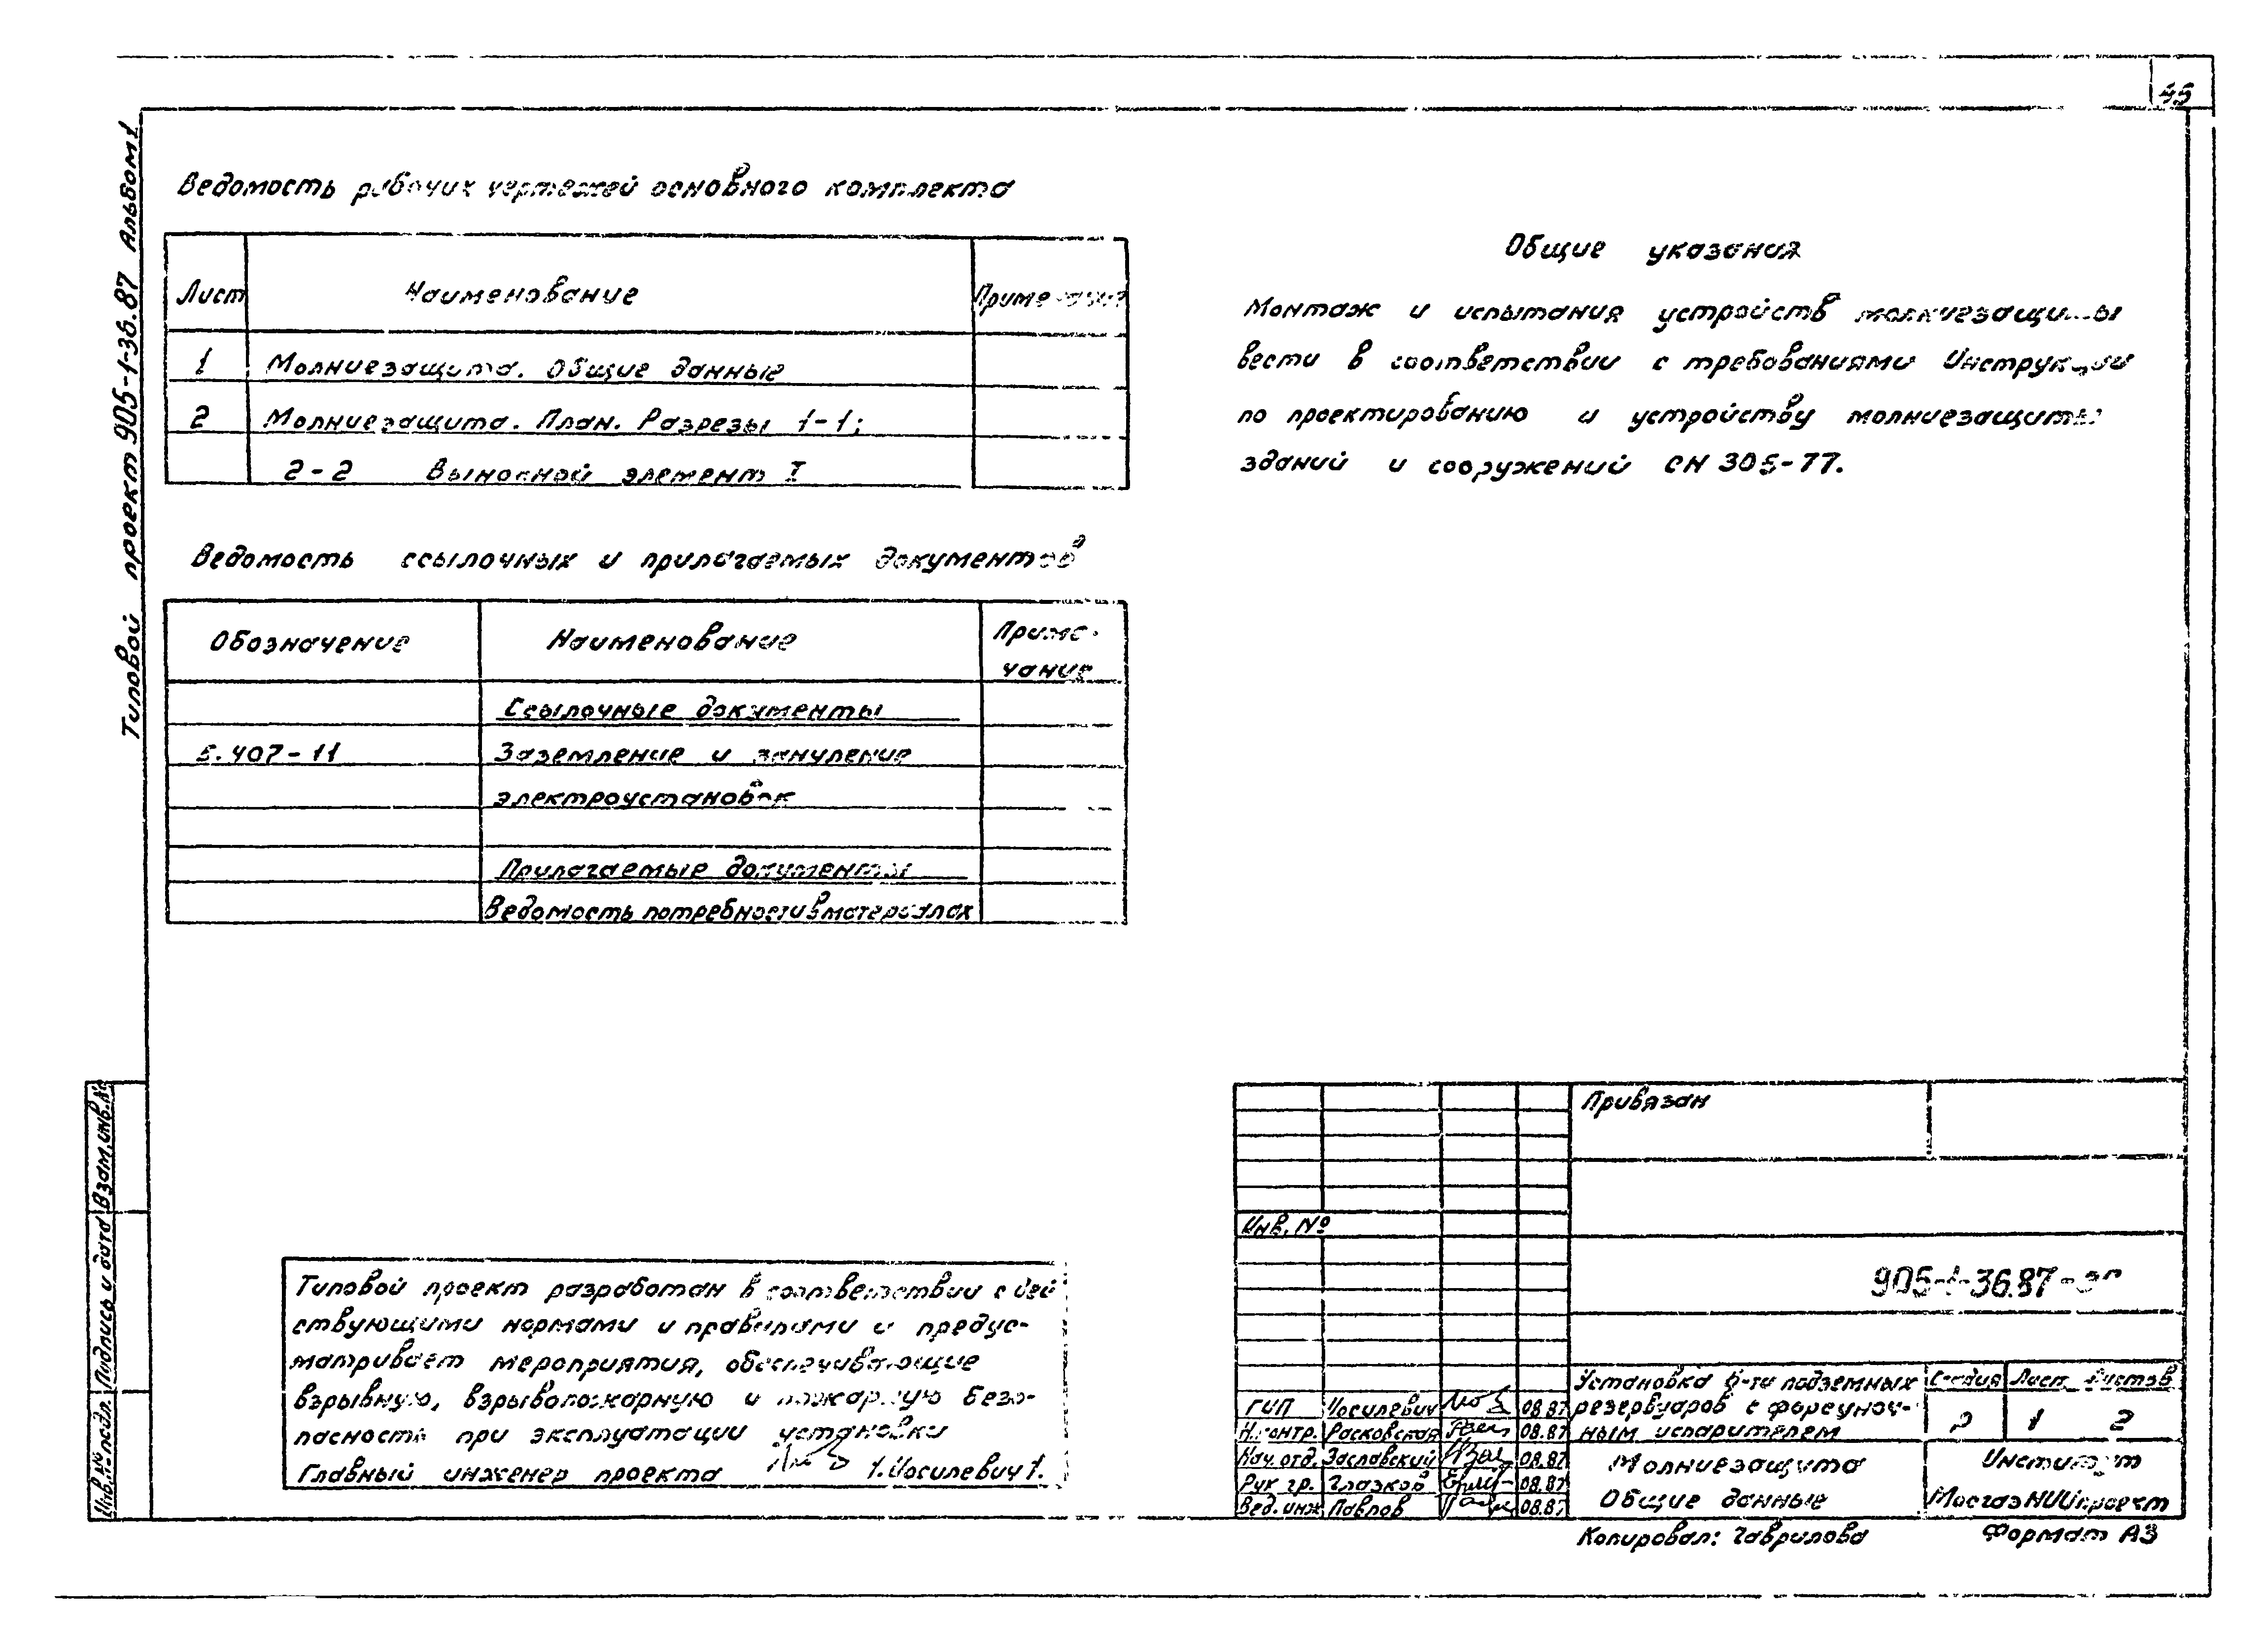 45
Типовой проект 905-1-36.87 Альбом 1
Ведомость рабочих чертежей основного комплекта
Лист Наименование Примечание
1 Молниезащита. Общие данные
2 Молниезащита. План. Разрезы 1-1;
2-2 Выносной элемент I
Ведомость ссылочных и прилагаемых документов
Обозначение Наименование Приме-
чание
Ссылочные документы
5.407-11 Заземление и зануление
электроустановок
Прилагаемые документы
Ведомость потребности в материалах
Общие указания
Монтаж и испытания устройств молниезащиты
вести в соответствии с требованиями Инструкции
по проектированию и устройству молниезащиты
зданий и сооружений СН 305-77.
Типовой проект разработан в соответствии с дей
ствующими нормами и правилами и предус-
матривает мероприятия, обеспечивающие
взрывную, взрывопожарную и пожарную безо-
пасность при эксплуатации установки
Главный инженер проекта /Иосилевич/.
Инв.№ подл. Подпись и дата Взам.инв.№
Привязан
Инв. №
905-1-36.87-
Установка 6-ти подземных
резервуаров с форсуноч-
ным испарителем
Стадия Лист Листов
Р 1 2
ГИП Иосилевич 08.87
Н.контр. Расковская 08.87
Нач.отд. Заславский 08.87
Рук гр. Глазков 08.87
Вед.инж Павлов 08.87
Молниезащита
Общие данные
Институт
МосгазНИИпроект
Копировал: Гаврилова Формат А3